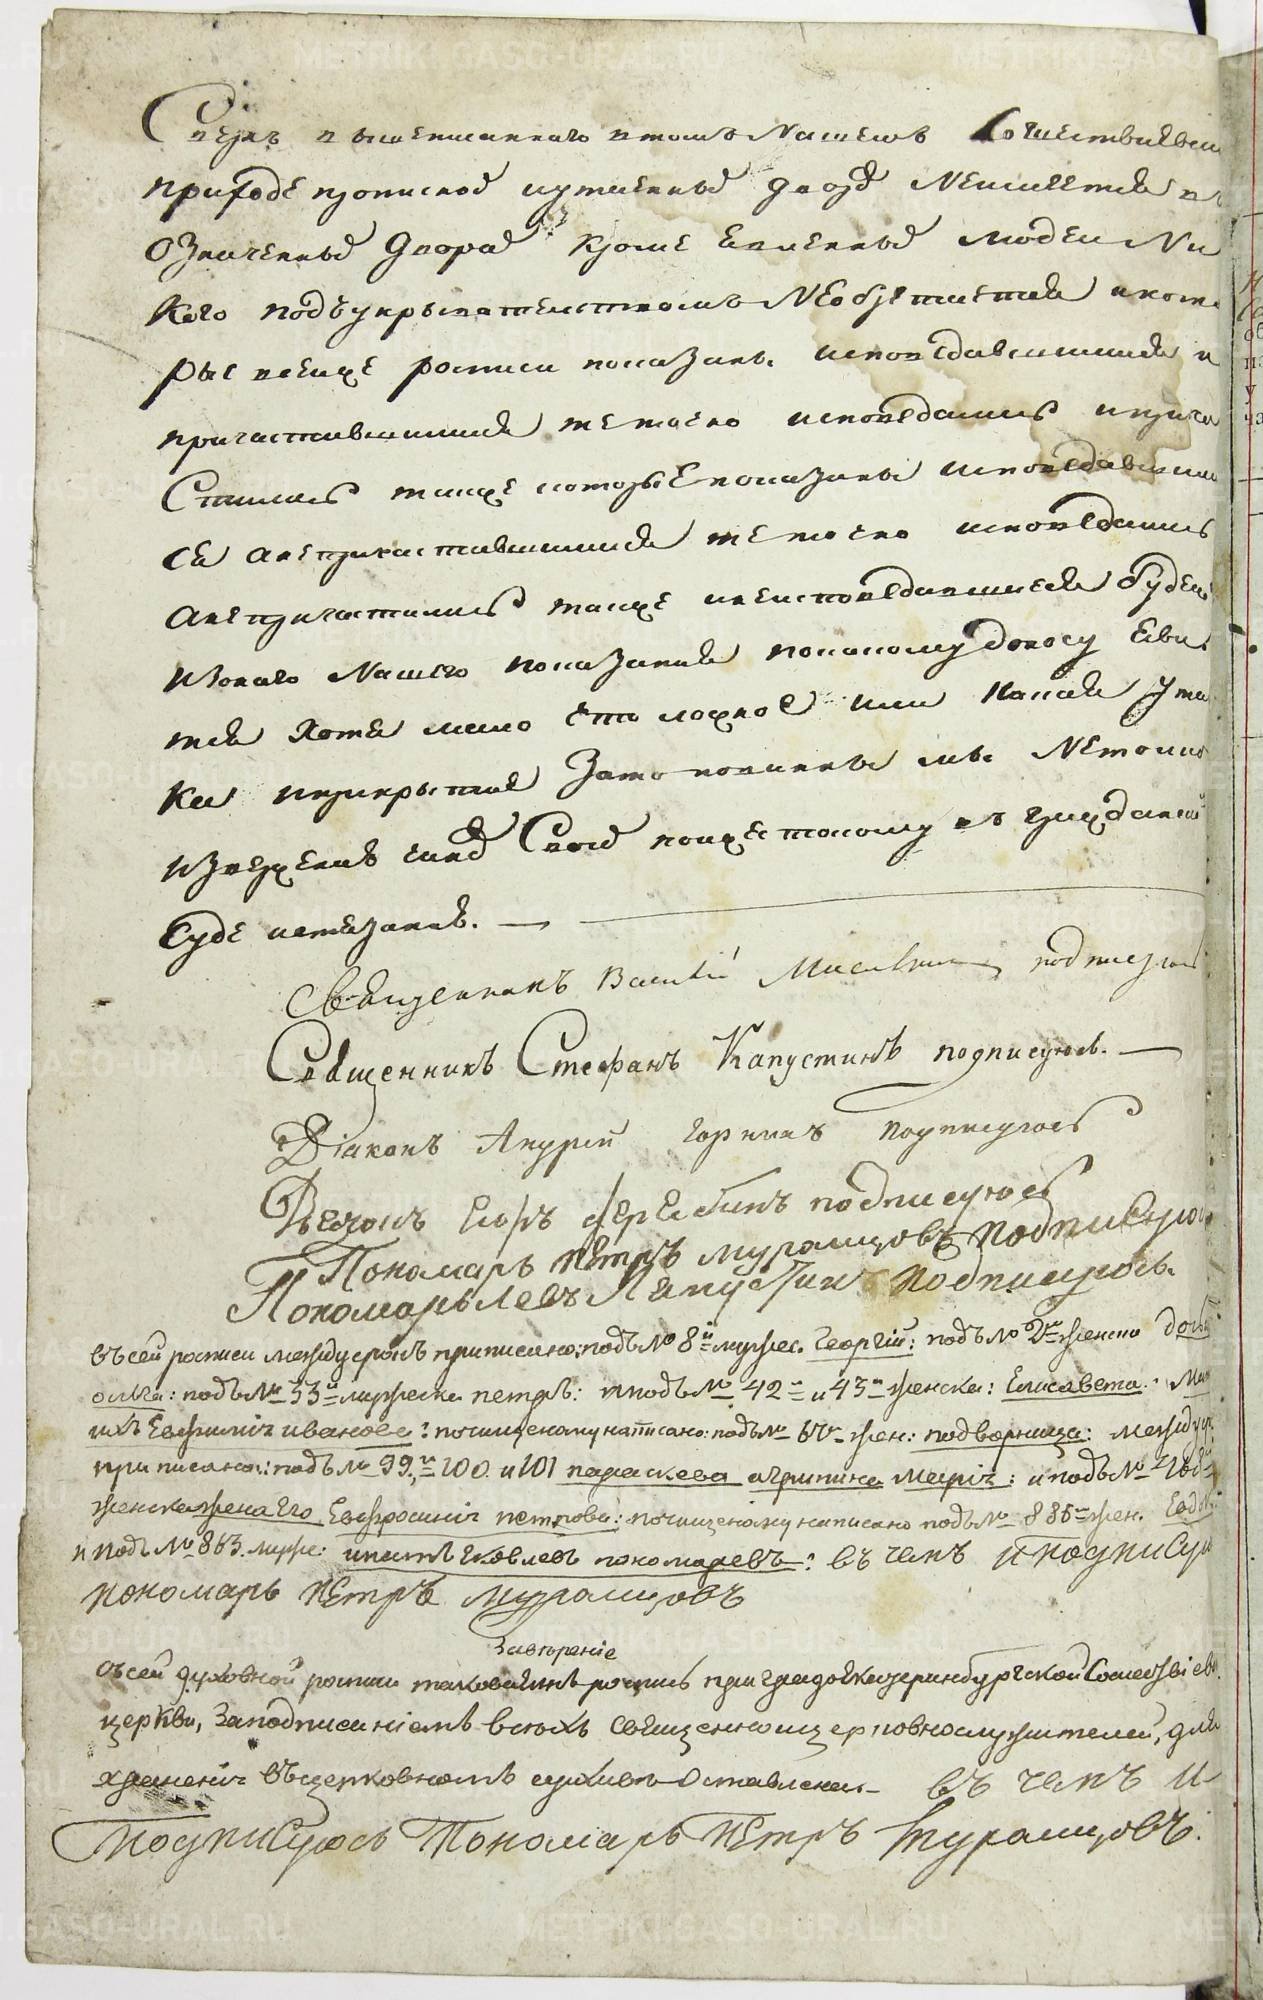 Сверхъ вышеписаннаго втомъ Нашемъ Сошествиевском
приходе прописной иутаенной дворъ Неимеется в
Означенныхъ Дворахъ кроме Явленныхъ Людеи Ни
Кого подъукрывателствомъ Необретается икото
рые всеице росписи показаны исповедавшимися и
причаставшимися те точно исповедались иприча
Стились такъже которые показаны исповедавшими
ся анепричаставшимися те точно исповедались
анепричастились такъже инеисповедавшиеся будеже
изоного Нашего показания покакому доносу Явит
ся Хотя мало что ложное или какая ута
Ка иприкрытие Зато повинны мы Нетокмо
извержения чиновъ Своихъ ноижестокому въ гражданскомъ
Суде истязанию. —
Священникъ Василий подписуюсь
Священникъ Стефанъ Капустинъ подписуюсь. —
Діаконъ Андрей Горныхъ подписуюсь
Дьячокъ Егоръ Серебинъ подписуюсь
Пономарь Петръ Мурамцовъ подписуюсь
Пономарь Левъ Капустинъ подписуюсь.
въсей росписи междустрокъ приписано: подъ№ 8й мужес. Георгій: подъ№ 2м женска
ольга: подъ№ 33м мужеска петръ: иподъ№ 42м и 43м женска: Елисавета:
ихъ Евфимія иванова: почищеному написано: подъ№ жен: подворница: междустр
приписано: подъ№ 99,м 100 и 101 параскева агрипина Марія: и подъ№
женска жена Его Евфросинія петрова: почищеному написано подъ№ 885м жен.
и подъ№ 863. муже: игнатъ яковлевъ пономаревъ: въ чемъ и подписую
пономарь петръ мурамцовъ
Заверение
съсей духовной росписи таковаяжъ роспись при градоЕкатеринбургской Сошествіевс.
церкви, Заподписаніемъ всехъ священноицерковнослужителей, для
храненія въцерковномъ архиве Оставлена — въ чемъ и
подписуюсь Пономарь петръ Мурамцовъ.